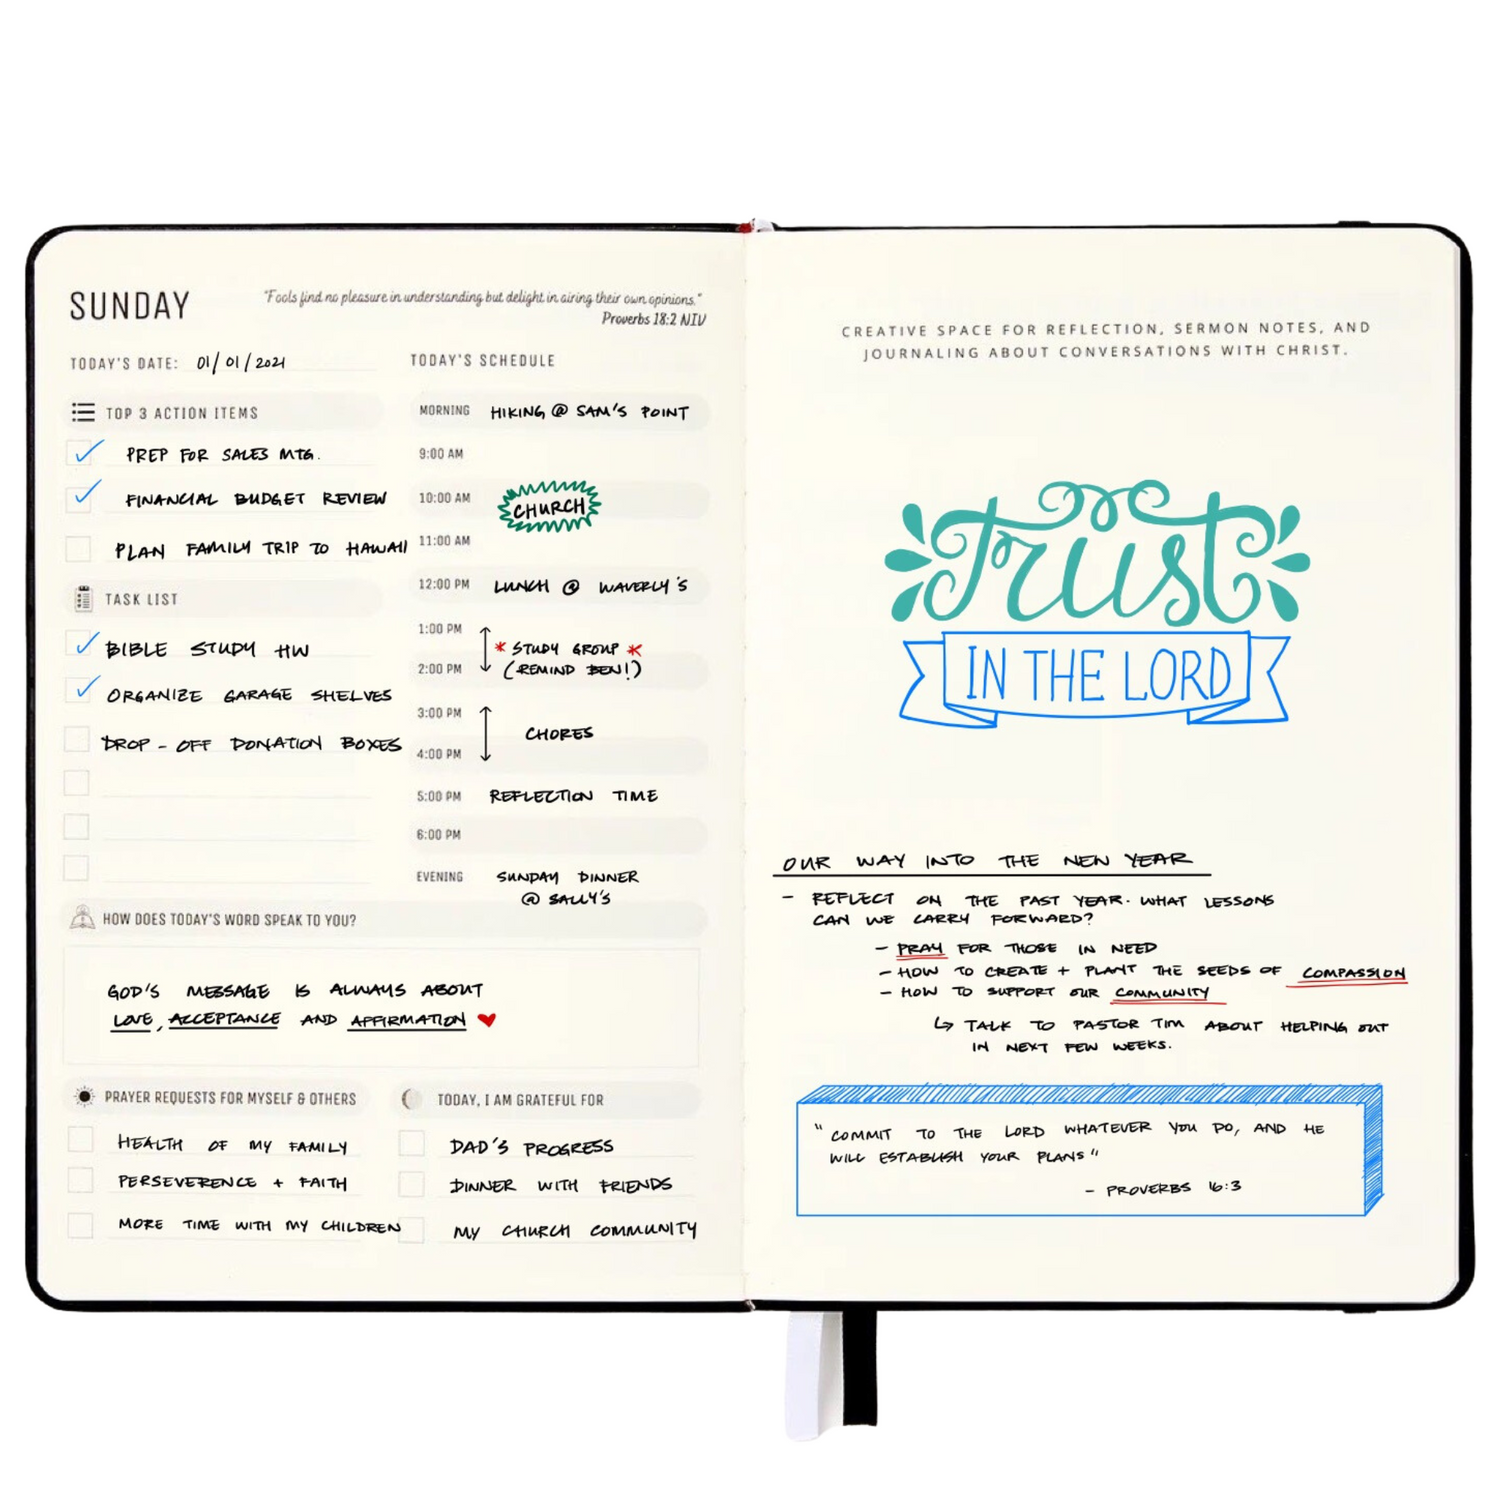 SUNDAY
"Fools find no pleasure in understanding but delight in airing their own opinions."
Proverbs 18:2 NIV
TODAY'S DATE: 01/01/2021
TOP 3 ACTION ITEMS
PREP FOR SALES MTG.
FINANCIAL BUDGET REVIEW
PLAN FAMILY TRIP TO HAWAII
TASK LIST
BIBLE STUDY HW
ORGANIZE GARAGE SHELVES
DROP-OFF DONATION BOXES
TODAY'S SCHEDULE
MORNING HIKING @ SAM'S POINT
9:00 AM
10:00 AM CHURCH
11:00 AM
12:00 PM LUNCH @ WAVERLY'S
1:00 PM * STUDY GROUP *
2:00 PM (REMIND BEN!)
3:00 PM
CHORES
4:00 PM
5:00 PM REFLECTION TIME
6:00 PM
EVENING SUNDAY DINNER
@ SALLY'S
HOW DOES TODAY'S WORD SPEAK TO YOU?
GOD'S MESSAGE IS ALWAYS ABOUT
LOVE, ACCEPTANCE AND AFFIRMATION ♥
PRAYER REQUESTS FOR MYSELF & OTHERS
HEALTH OF MY FAMILY
PERSEVERENCE + FAITH
MORE TIME WITH MY CHILDREN
TODAY, I AM GRATEFUL FOR
DAD'S PROGRESS
DINNER WITH FRIENDS
MY CHURCH COMMUNITY
CREATIVE SPACE FOR REFLECTION, SERMON NOTES, AND
JOURNALING ABOUT CONVERSATIONS WITH CHRIST.
Trust
IN THE LORD
OUR WAY INTO THE NEW YEAR
- REFLECT ON THE PAST YEAR. WHAT LESSONS
CAN WE CARRY FORWARD?
- PRAY FOR THOSE IN NEED
- HOW TO CREATE + PLANT THE SEEDS OF COMPASSION
- HOW TO SUPPORT OUR COMMUNITY
↳ TALK TO PASTOR TIM ABOUT HELPING OUT
IN NEXT FEW WEEKS.
"COMMIT TO THE LORD WHATEVER YOU DO, AND HE
WILL ESTABLISH YOUR PLANS"
- PROVERBS 16:3